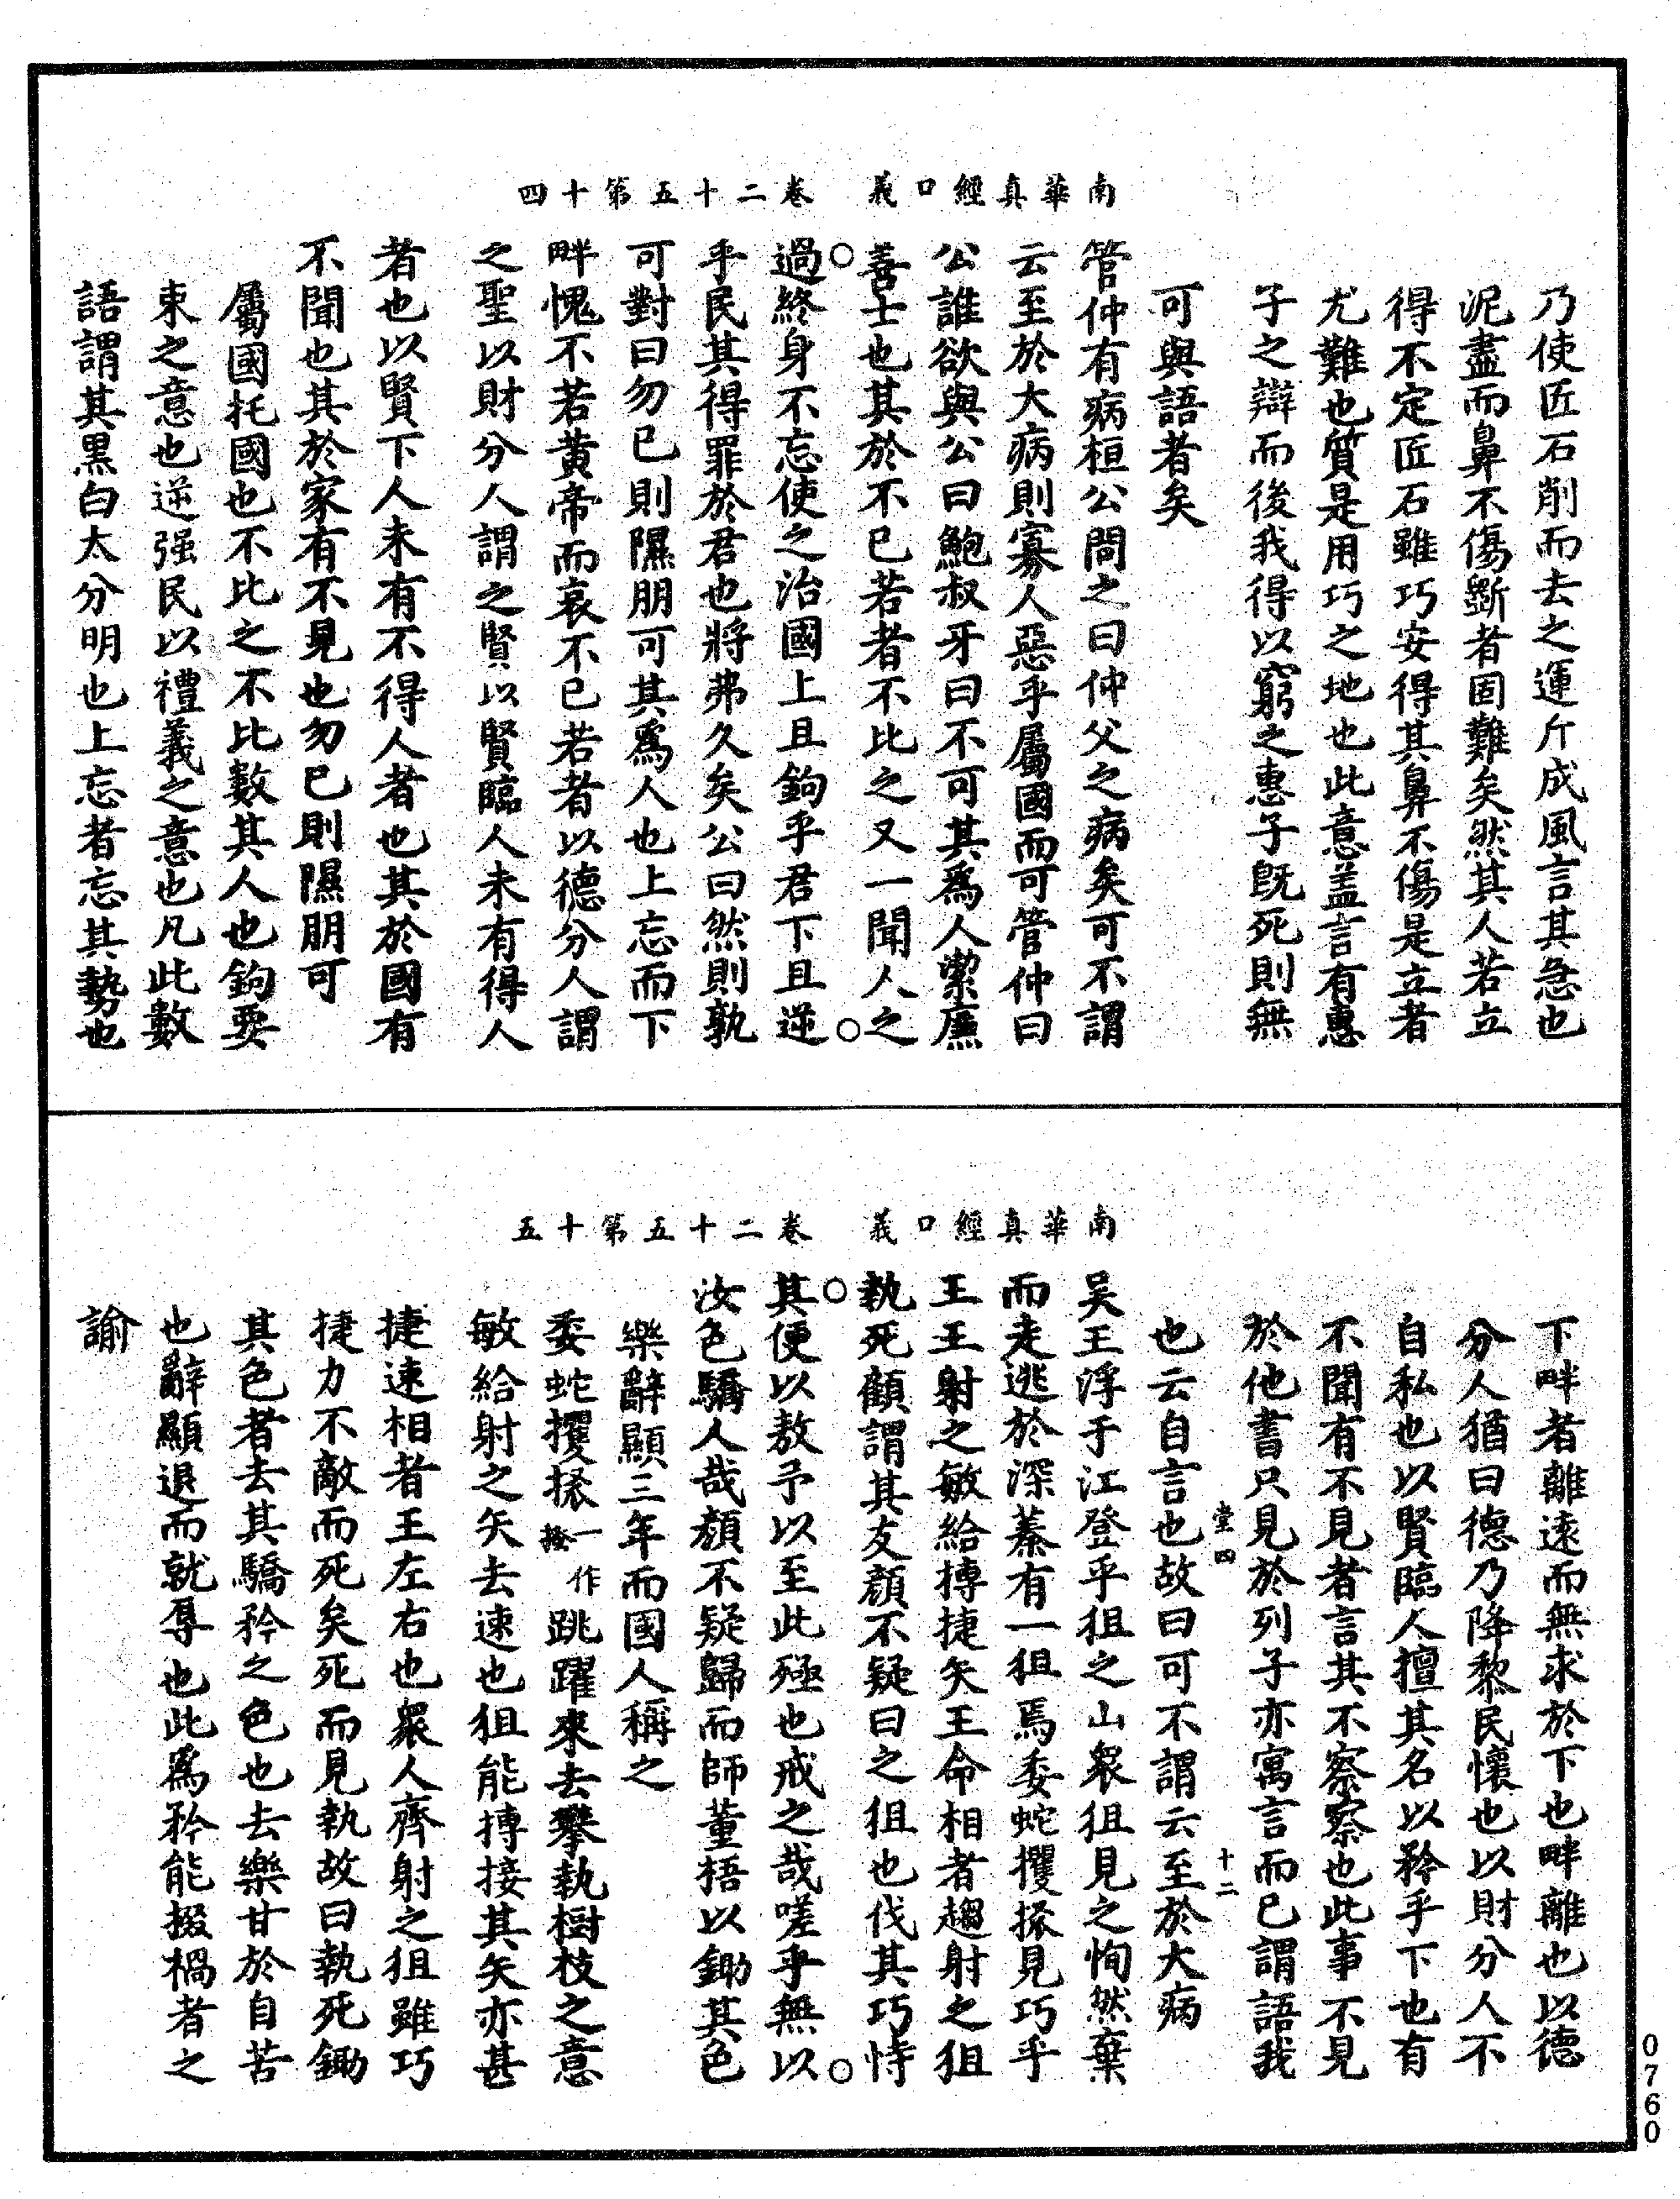 南華真經口義　卷二十五第十四
乃使匠石削而去之運斤成風言其急也
泥盡而鼻不傷斲者固難矣然其人若立
得不定匠石雖巧安得其鼻不傷是立者
尤難也質是用巧之地也此意盖言有惠
子之辯而後我得以窮之惠子旣死則無
可與語者矣
管仲有病桓公問之曰仲父之病矣可不謂
云至於大病則寡人惡乎屬國而可管仲曰
公誰欲與公曰鮑叔牙曰不可其爲人潔廉
善士也其於不已若者不比之又一聞人之
過終身不忘使之治國上且鉤乎君下且逆
乎民其得罪於君也將弗久矣公曰然則孰
可對曰勿已則隰朋可其爲人也上忘而下
畔愧不若黃帝而哀不已若者以德分人謂
之聖以財分人謂之賢以賢臨人未有得人
者也以賢下人未有不得人者也其於國有
不聞也其於家有不見也勿已則隰朋可
屬國托國也不比之不比數其人也鉤要
束之意也逆强民以禮義之意也凡此數
語謂其黑白太分明也上忘者忘其勢也
南華真經口義　卷二十五第十五
下畔者離遠而無求於下也畔離也以德
分人猶曰德乃降黎民懷也以財分人不
自私也以賢臨人擅其名以矜乎下也有
不聞有不見者言其不察察也此事不見
於他書只見於列子亦寓言而已謂語我
堂四
十二
也云自言也故曰可不謂云至於大病
吳王浮于江登乎狙之山衆狙見之恂然棄
而走逃於深蓁有一狙焉委蛇攫搔見巧乎
王王射之敏給搏捷矢王命相者趨射之狙
執死顧謂其友顏不疑曰之狙也伐其巧恃
其便以敖予以至此殛也戒之哉嗟乎無以
汝色驕人哉顏不疑歸而師董梧以鋤其色
樂辭顯三年而國人稱之
委蛇攫搔一作跳躍來去攀執樹枝之意
敏給射之矢去速也狙能搏接其矢亦甚
捷速相者王左右也衆人齊射之狙雖巧
捷力不敵而死矣死而見執故曰執死鋤
其色者去其驕矜之色也去樂甘於自苦
也辭顯退而就辱也此爲矜能掇禍者之
諭
0760